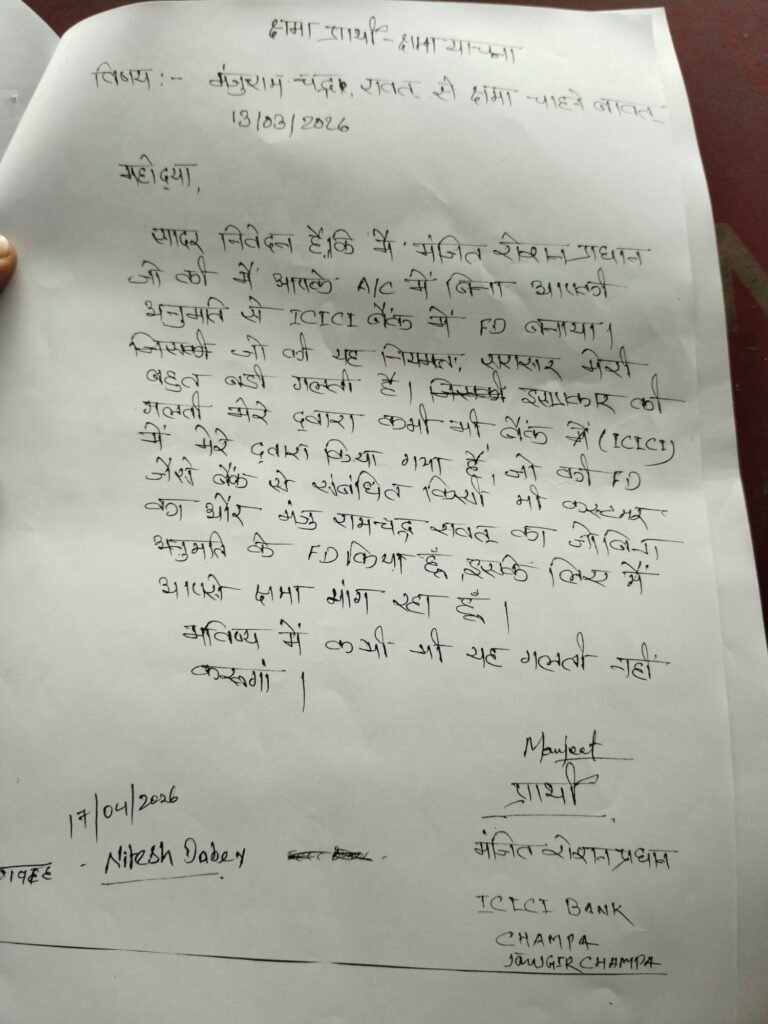 क्षमा प्रार्थी - क्षमा याचना
विषय :- मंजुराम चन्द्रा, रावत से क्षमा चाहने बावत्
13/03/2026
महोदया,
सादर निवेदन है, कि मैं मंजित रोशन प्रधान
जो की मैं आपके A/C में बिना आपकी
अनुमति से ICICI बैंक में FD बनाया।
जिसकी जो की यह नियमत: सरासर मेरी
बहुत बडी गलती है। जिसकी इसप्रकार की
गलती मेरे द्वारा कभी भी बैंक में (ICICI)
में मेरे द्वारा किया गया है, जो की FD
जैसे बैंक से संबंधित किसी भी कस्टमर
का और मंजु रामचन्द्र रावत का जो बिना
अनुमति के FD किया हूँ, इसके लिए मैं
आपसे क्षमा मांग रहा हूँ।
भविष्य में कभी भी यह गलती नहीं
करूगां।
Manjeet
प्रार्थी
17/04/2026
Nitesh Dabey
मंजित रोशन प्रधान
ICICI BANK
CHAMPA
JANJGIR CHAMPA